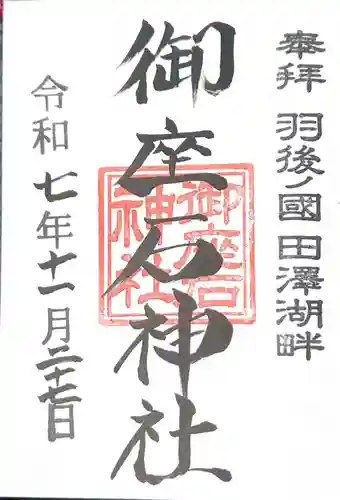 奉拝 羽後ノ國田澤湖畔
御座石神社
御座石
神社
令和七年十一月二十七日